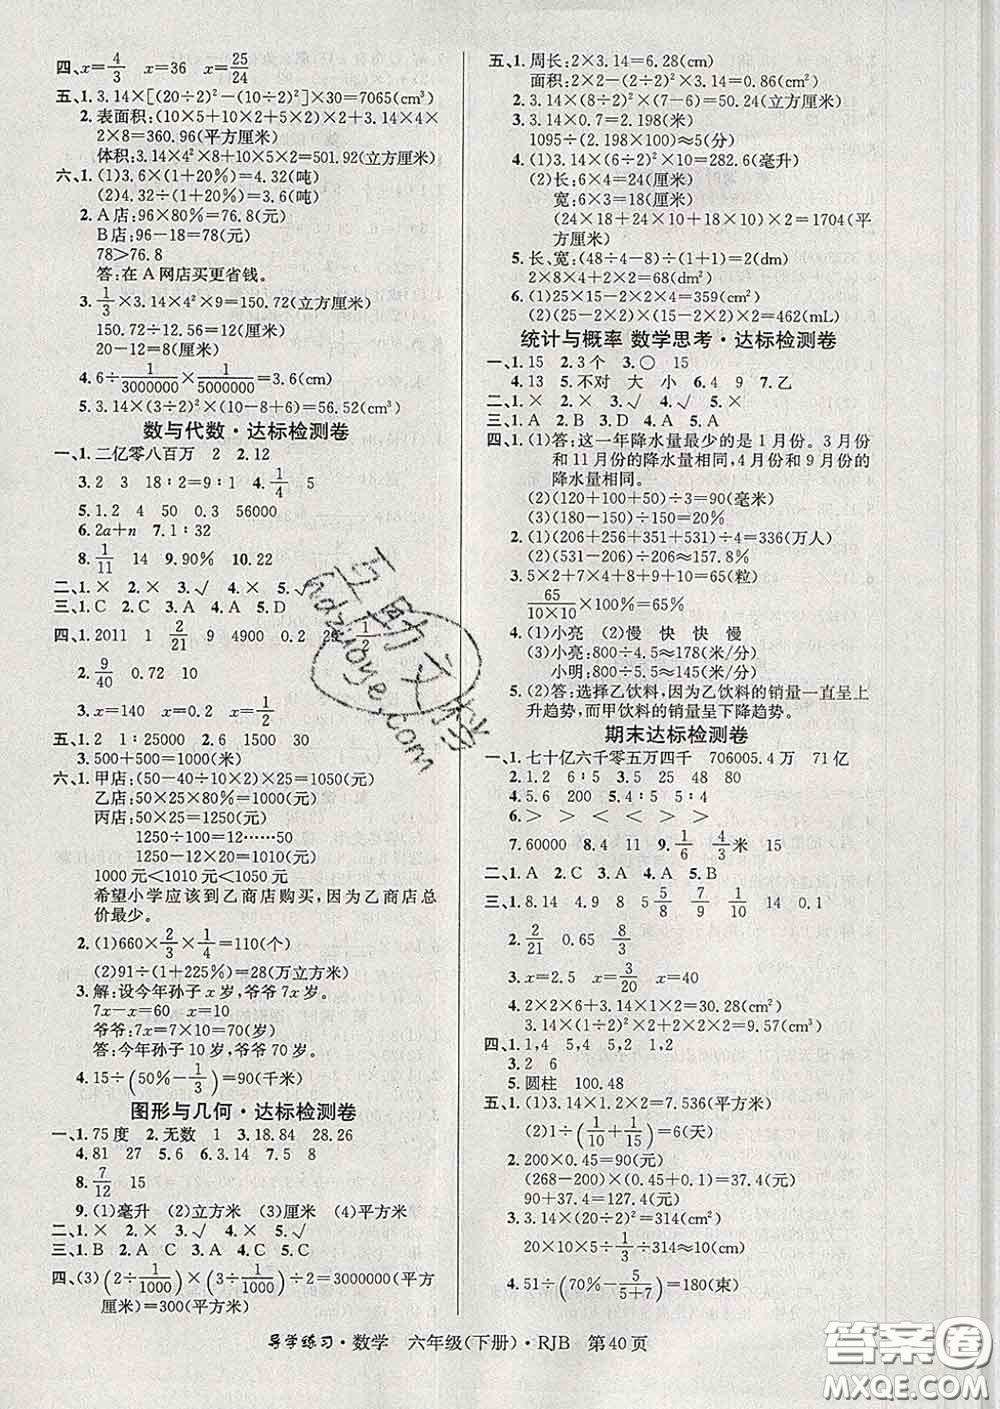 四、x=4/3 x=36 x=25/24
五、1. 3.14×[(20÷2)²-(10÷2)²]×30=7065(cm³)
2. 表面积:(10×5+10×2+5×2)×2+3.14×4×
2×8=360.96(平方厘米)
体积:3.14×4²×8+10×5×2=501.92(立方厘米)
六、1. (1)3.6×(1+20%)=4.32(吨)
(2)4.32÷(1+20%)=3.6(吨)
2. A店:96×80%=76.8(元)
B店:96-18=78(元)
78>76.8
答:在A网店买更省钱。
3. 1/3×3.14×4²×9=150.72(立方厘米)
150.72÷12.56=12(厘米)
20-12=8(厘米)
4. 6÷1/3000000×1/5000000=3.6(厘米)
5. 3.14×(3÷2)²×(10-8+6)=56.52(cm³)
数与代数·达标检测卷
一、1. 二亿零八百万 2 2. 12
3. 2 3 18∶2=9∶1 4. 1/4 5
5. 1.2 4 50 0.3 56000
6. 2a+n 7. 1∶32
8. 1/11 14 9. 90% 10. 22
二、1. × 2. × 3. √ 4. × 5. √
三、1. C 2. C 3. A 4. A 5. D
四、1. 2011 1 2/21 9 4900 0.2 29 1/2
2. 9/40 0.72 10
3. x=140 x=0.2 x=1/2
五、1. 2 1∶25000 2. 6 50
3. 500+500=1000(米)
六、1. 甲店:(50-40÷10×2)×25=1050(元)
乙店:50×25×80%=1000(元)
丙店:50×25=1250(元)
1250÷100=12……50
1250-12×20=1010(元)
1000元<1010元<1050元
希望小学应该到乙商店购买,因为乙商店总
价最少。
2. (1)660×2/3×1/4=110(个)
(2)91÷(1+225%)=28(万立方米)
3. 解:设今年孙子x岁,爷爷7x岁。
7x-x=60 x=10
爷爷:7x=7×10=70(岁)
答:今年孙子10岁,爷爷70岁。
4. 15÷(50%-1/3)=90(千米)
图形与几何·达标检测卷
一、1. 75度 2. 无数 1 3. 18.84 28.26
4. 81 27 5. 6 6. 3∶4 7. 5 8
8. 7/12 15
9. (1)毫升 (2)立方米 (3)厘米 (4)平方米
二、1. × 2. × 3. √ 4. × 5. √
三、1. B 2. A C 3. A 4. C 5. A
四、(3)(2÷1/1000)×(3÷1/1000)÷2=3000000(平方
厘米)=300(平方米)
五、1. 周长:2×3.14=6.28(cm)
面积:2×2-(2÷2)²×3.14=0.86(cm²)
2. 3.14×(8÷2)²×(7-6)=50.24(立方厘米)
3. 3.14×0.7=2.198(米)
1095÷(2.198×100)≈5(分)
4. (1)3.14×(6÷2)²×10=282.6(毫升)
(2)长:6×4=24(厘米)
宽:6×3=18(厘米)
(24×18+24×10+18×10)×2=1704(平
方厘米)
5. 长、宽:(48÷4-8)÷(1+1)=2(dm)
2×8×4+2×2=68(dm²)
6. (1)25×15-2×2×4=359(cm²)
(2)(25-2×2)×(15-2×2)×2=462(mL)
统计与概率 数学思考·达标检测卷
一、1. 15 2. 3个 3. ○ 15
4. 13 5. 不对 大 小 6. 4 9 7. 乙
二、1. × 2. × 3. √ 4. √ 5. ×
三、1. A 2. B 3. D 4. A 5. A
四、1. (1)答:这一年降水量最少的是1月份。3月份
和11月份的降水量相同,4月份和9月份的
降水量相同。
(2)(120+100+50)÷3=90(毫米)
(3)(180-150)÷150=20%
2. (1)(206+256+351+531)÷4=336(万人)
(2)(531-206)÷206≈157.8%
3. 5×2+7×4+8×1+6×3+1=65(粒)
65/10×10×100%=65%
4. (1)小亮 (2)慢 快 快 慢
(3)小亮:800÷4.5≈178(米/分)
小明:800÷5.5≈145(米/分)
5. (2)答:选择乙饮料,因为乙饮料的销量一直呈上
升趋势,而甲饮料的销量呈下降趋势。
期末达标检测卷
一、1. 七十亿六千零五万四千 706005.4万 71亿
2. 1.2 6∶5 3. 5 25 48 80
4. 5.6 200 5. 4∶5 5∶4
6. < > > < > <
7. 60000 8. 120 9. 4 1/6 4/3米 15
二、1. A 2. C 3. C 4. A 5. B
三、1. 8.14 4.9 8 5 5/8 7/9 1/10 14 0.1
2. 2/21 0.65 8/3
3. x=2.5 x=3/20 x=40
4. 2×2×6+3.14×1×2=30.28(cm²)
3.14×(1÷2)²×2+2×2×2=9.57(cm³)
四、1. 1,4 5,4 5,2 1,2
3. 2 6
5. 圆柱 100.48
五、1. (1)3.14×1.2×2=7.536(平方米)
(2)1÷(1/10+1/15)=6(天)
2. 200×0.45=90(元)
(268-200)×(0.45+0.1)=37.4(元)
90+37.4=127.4(元)
3. 3.14×(20÷2)²=314(cm²)
20×10×5÷1/3÷314≈10(cm)
4. 51÷(70%-5/5+7)=180(束)
导学练习·数学 六年级(下册)·RJB 第40页
互助文档
hdzuoye.com
答案圈
MXQE.COM